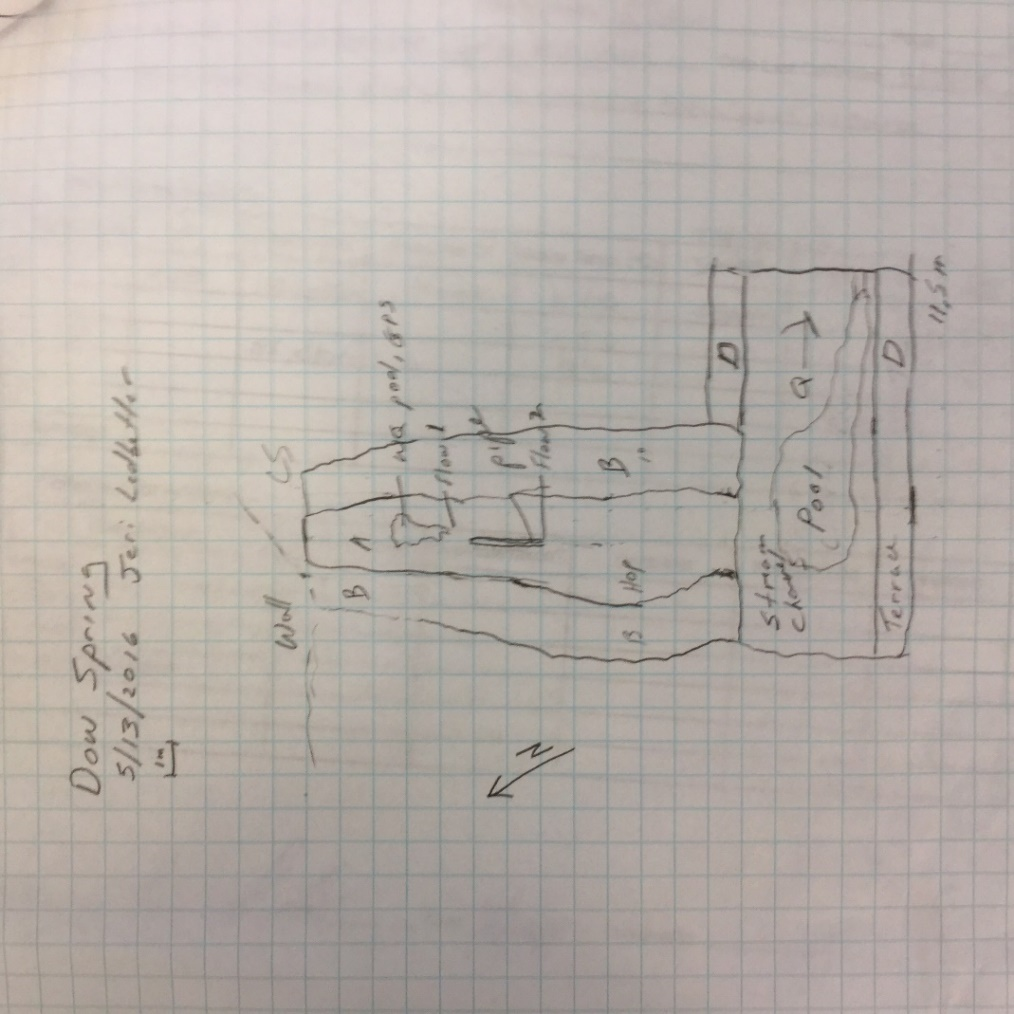 Dow Spring
5/13/2016 Jeri Ledbetter
1m
Wall
CS
B
A
WQ pool, GPS
Flow 1
pipe
Flow 2
B
Hop
B
N
D
Stream
Channel
Pool
Q
Terrace
D
11.5m